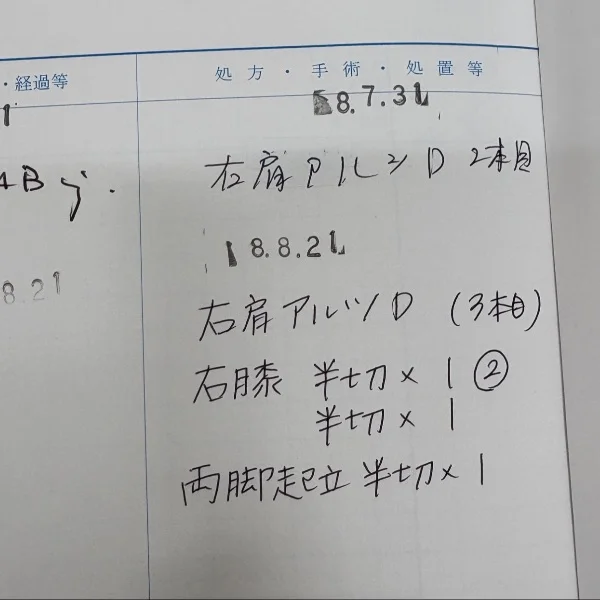 ・経過等
処方・手術・処置等
8.7.31
右肩アルツD 2本目
AB
18.8.21
8.21
右肩アルツD (3本目)
右膝 半切×1 ②
半切×1
両脚起立 半切×1